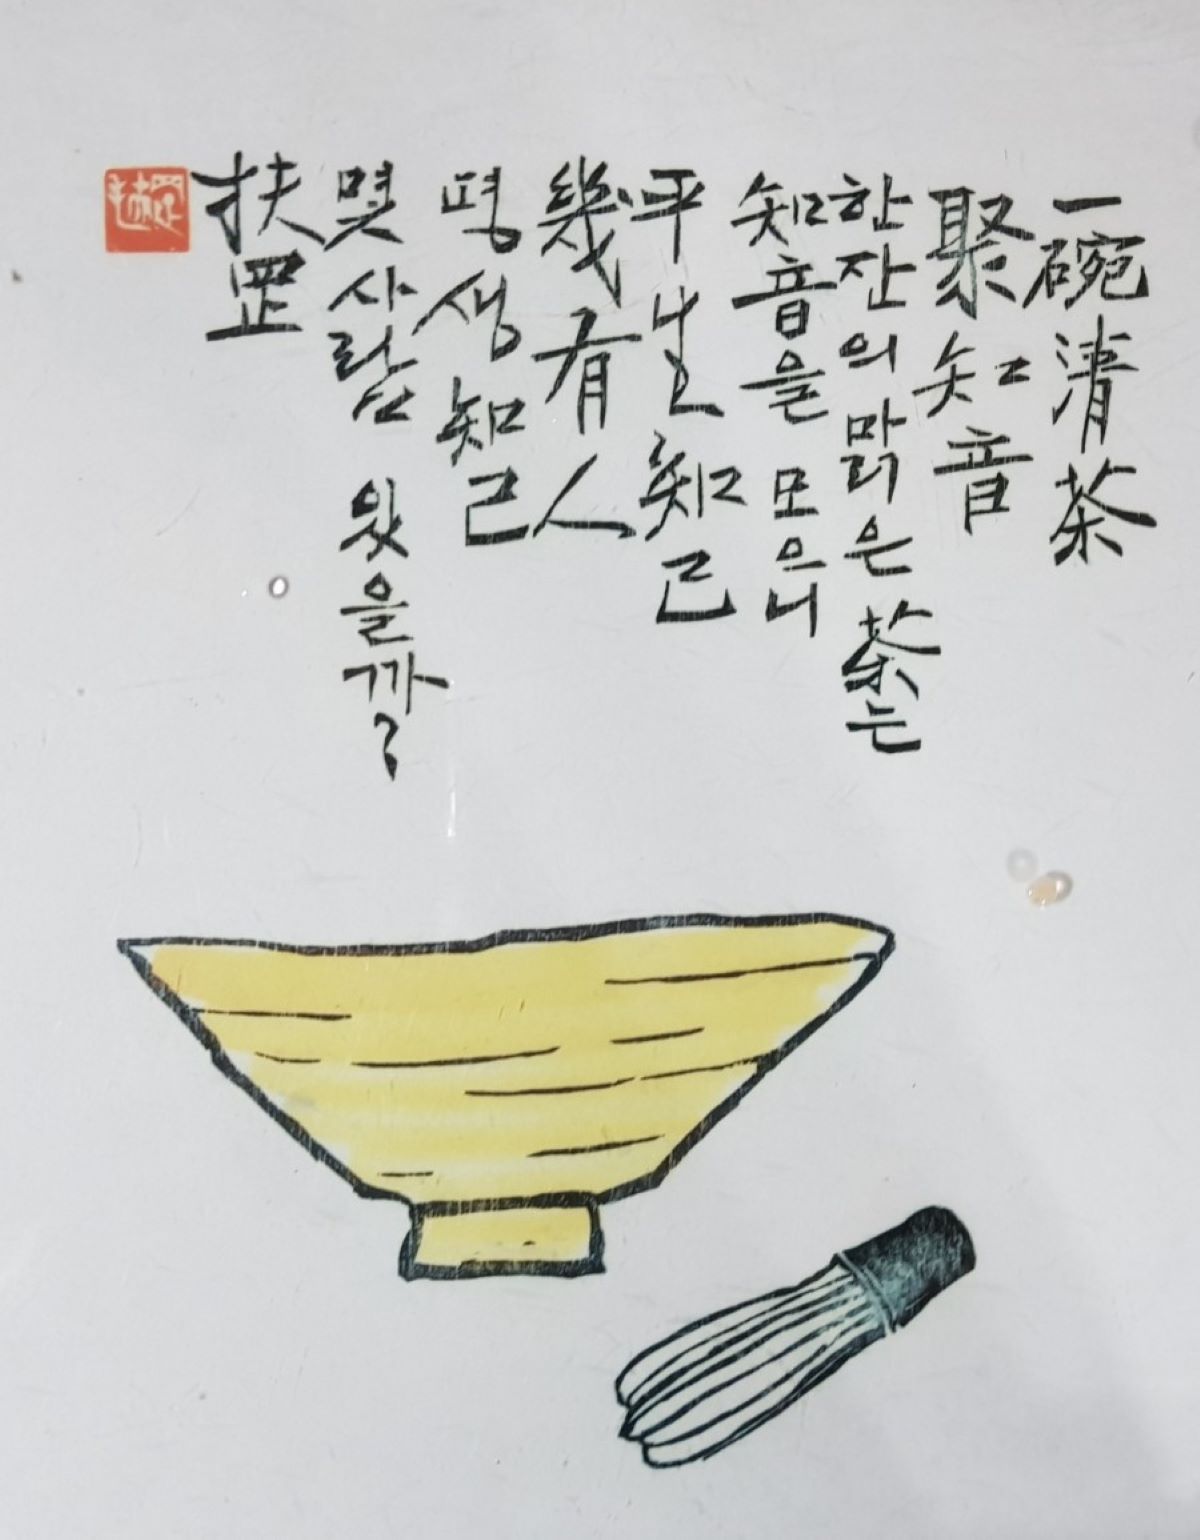 一碗清茶
聚知音
한잔의 맑은 茶는
知音을 모으니
平生知己
幾有人
평생 知己
몇 사람 있을까?
扶罡